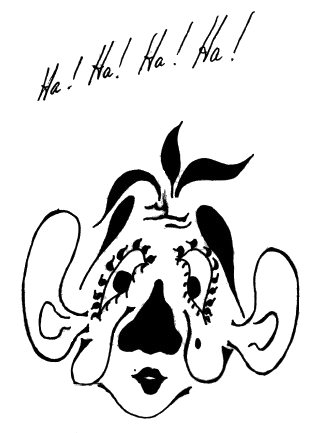 Ha! Ha! Ha! Ha!